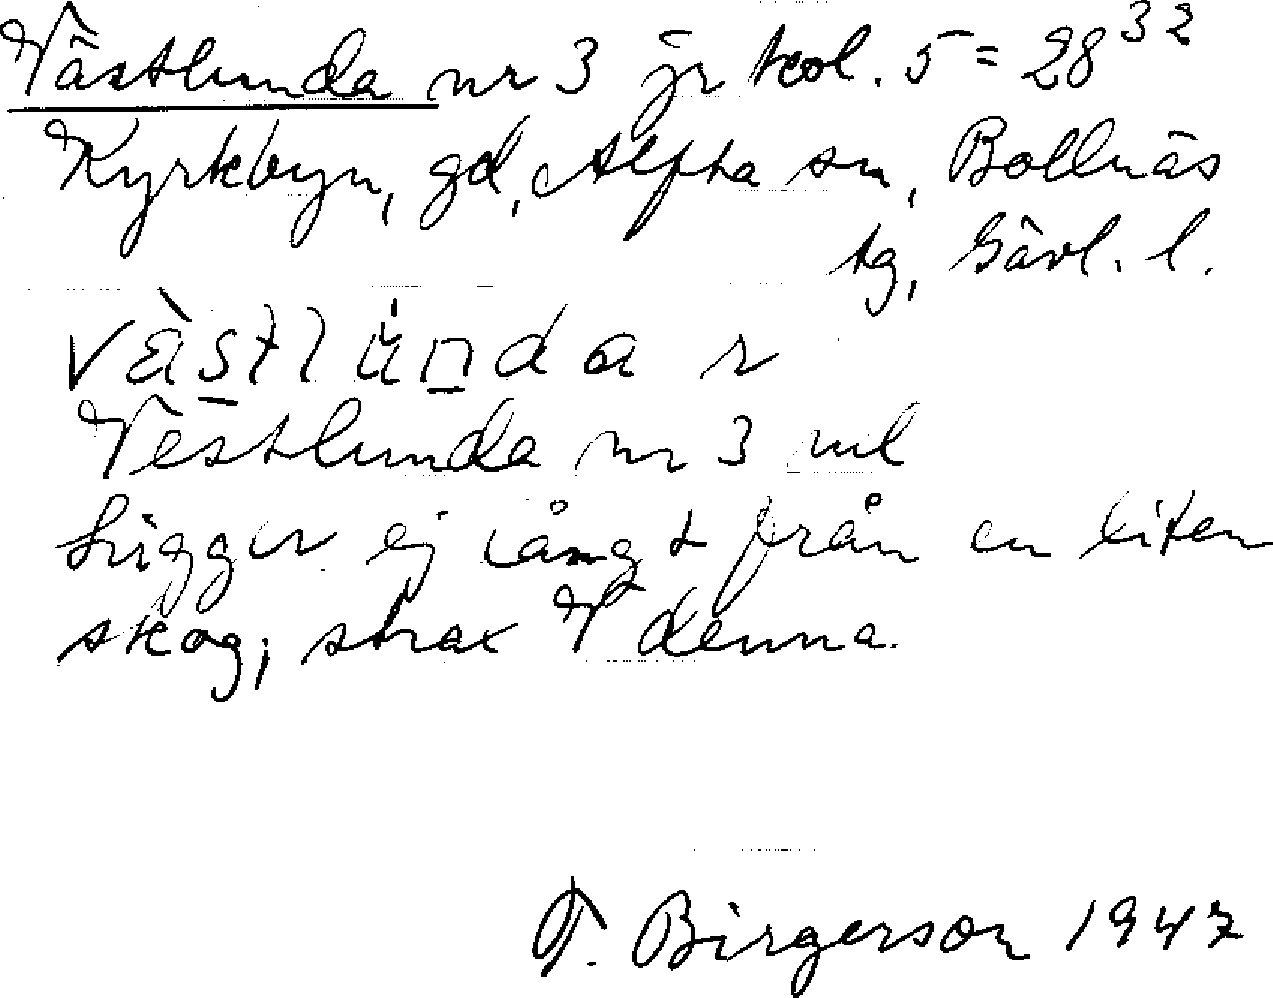 Västlunda nr 3 jr kol. 5 = 28 32
Kyrkbyn, gd, Alfta sn, Bollnäs
tg, Gävl. l.
västlunda r
Vestlunda nr 3 ml
Ligger ej långt från en liten
skog, strax V denna.
T. Birgerson 1947